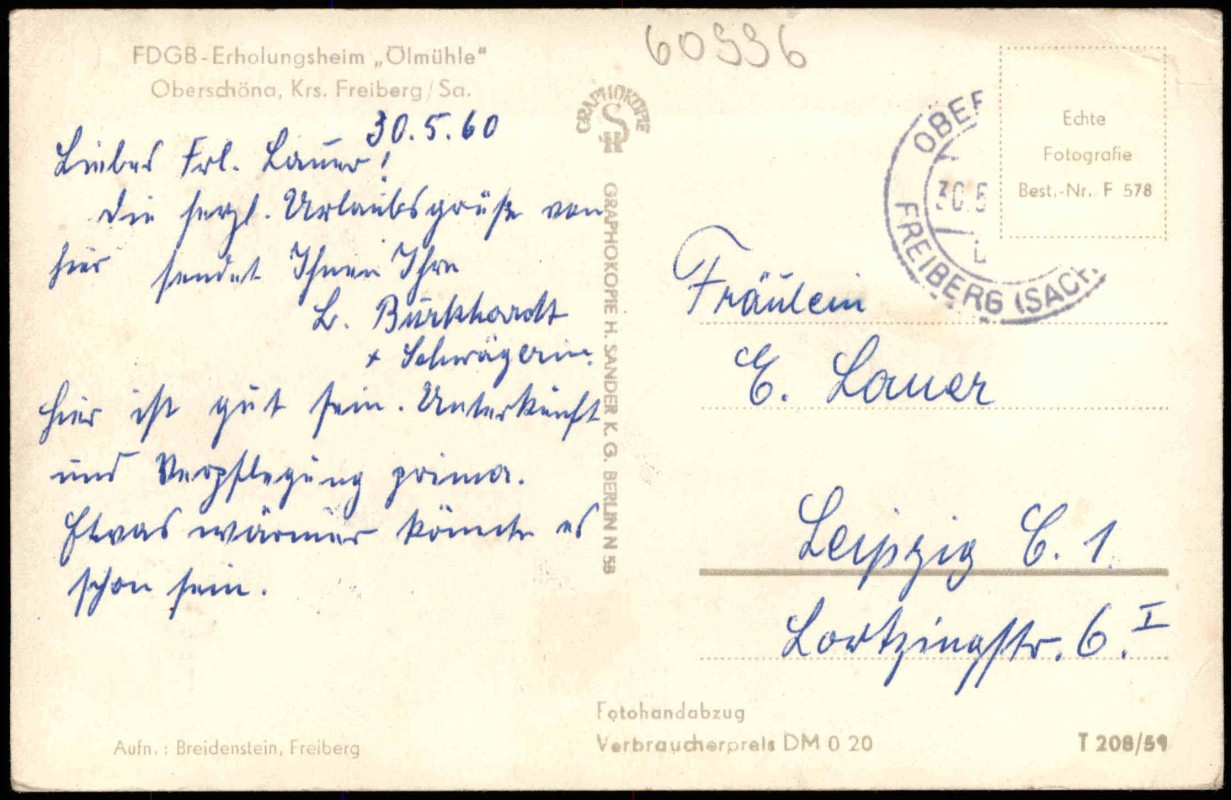 FDGB-Erholungsheim „Ölmühle"
Oberschöna, Krs. Freiberg/Sa.
30.5.60
Liebes Frl. Lauer!
Die herzl. Urlaubsgrüße von
hier sendet Ihnen Ihre
L. Burkhardt
+ Schwägerin.
Hier ist gut sein. Unterkunft
und Verpflegung prima.
Etwas wärmer könnte es
schon sein.
Aufn.: Breidenstein, Freiberg
60996
GRAPHOKOPIE
GRAPHOKOPIE H. SANDER K. G. BERLIN N 58
OBER
30.5
FREIBERG (SACH.
Echte
Fotografie
Best.-Nr. F 578
Fräulein
E. Lauer
Leipzig C. 1
Lortzingstr. 6. I
Fotohandabzug
Verbraucherpreis DM 0 20
T 208/59